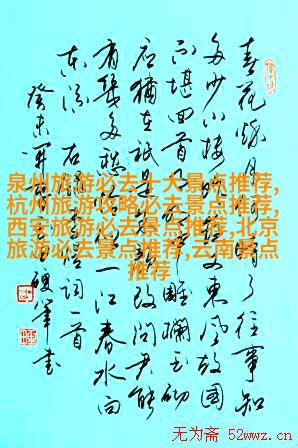 春花秋月何时了往事知
多少小楼昨夜又東风故国
不堪回首月明中雕欄玉砌
应犹在祗是朱颜改问君能
有幾多愁恰似一江春水向
东流 右 词一首
癸未 书
泉州旅游必去十大景点推荐,
杭州旅游攻略必去景点推荐,
西安旅游必去景点推荐,北京
旅游必去景点推荐,云南景点
推荐
无为斋 52wwz.cn